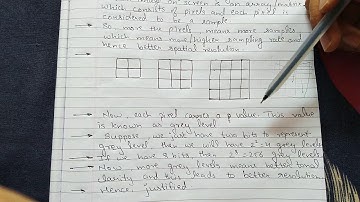 on screen is an array/matrix
which consists of pixels and each pixel is
considered to be a sample
→ So more the pixels, means more samples
which means more/higher sampling rate and
hence better spatial resolution
→ Now, each pixel carries a p value. This value
is known as grey level
→ Suppose we just have two bits to represent
grey level then we will have 2²=4 grey levels
→ If we have 8 bits, then 2⁸=256 grey levels
→ Now more grey levels means better tonal
clarity and this leads to better resolution
→ Hence justified